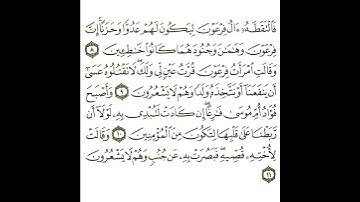 فَٱلۡتَقَطَهُۥٓ ءَالُ فِرۡعَوۡنَ لِيَكُونَ لَهُمۡ عَدُوّٗا وَحَزَنًاۗ إِنَّ
فِرۡعَوۡنَ وَهَٰمَٰنَ وَجُنُودَهُمَا كَانُواْ خَٰطِـِٔينَ ٨
وَقَالَتِ ٱمۡرَأَتُ فِرۡعَوۡنَ قُرَّتُ عَيۡنٖ لِّي وَلَكَۖ لَا تَقۡتُلُوهُ عَسَىٰٓ
أَن يَنفَعَنَآ أَوۡ نَتَّخِذَهُۥ وَلَدٗا وَهُمۡ لَا يَشۡعُرُونَ ٩ وَأَصۡبَحَ
فُؤَادُ أُمِّ مُوسَىٰ فَٰرِغًاۖ إِن كَادَتۡ لَتُبۡدِي بِهِۦ لَوۡلَآ أَن
رَّبَطۡنَا عَلَىٰ قَلۡبِهَا لِتَكُونَ مِنَ ٱلۡمُؤۡمِنِينَ ١٠ وَقَالَتۡ
لِأُخۡتِهِۦ قُصِّيهِۖ فَبَصُرَتۡ بِهِۦ عَن جُنُبٖ وَهُمۡ لَا يَشۡعُرُونَ
١١